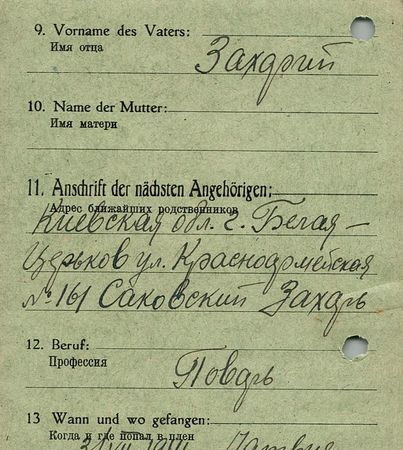 9. Vorname des Vaters:
Имя отца
Захарий
10. Name der Mutter:
Имя матери
11. Anschrift der nächsten Angehörigen:
Адрес ближайших родственников
Киевская обл. г. Белая-
Церьков ул. Красноармейская
№ 161 Саковский Захарь
12. Beruf:
Профессия
Поварь
13 Wann und wo gefangen:
Когда и где попал в плен